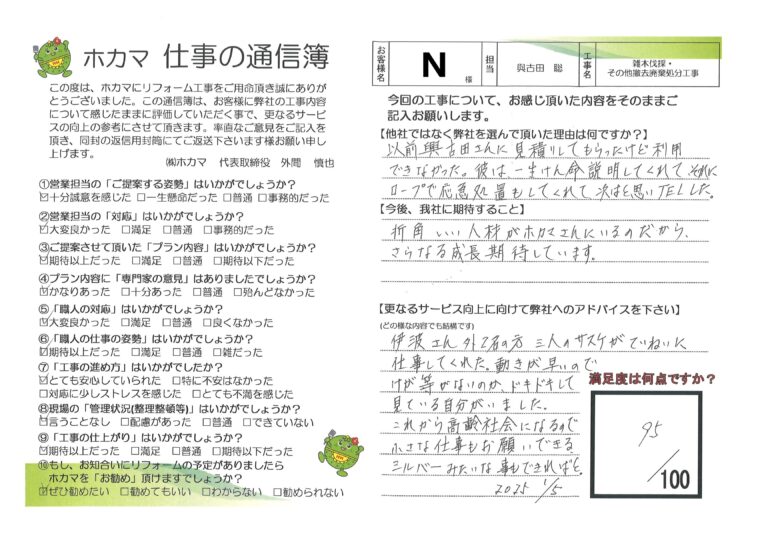 ホカマ 仕事の通信簿
この度は、ホカマにリフォーム工事をご用命頂き誠にありが
とうございました。この通信簿は、お客様に弊社の工事内容
について感じたままに評価していただく事で、更なるサービ
スの向上の参考にさせて頂きます。率直なご意見をご記入を
頂き、同封の返信用封筒にてご返送下さいます様お願い申し
上げます。
㈱ホカマ 代表取締役 外間 慎也
①営業担当の「ご提案する姿勢」はいかがでしょうか?
☑十分誠意を感じた □一生懸命だった □普通 □事務的だった
②営業担当の「対応」はいかがでしょうか?
☑大変良かった □満足 □普通 □事務的だった
③ご提案させて頂いた「プラン内容」はいかがでしょうか?
☑期待以上だった □満足 □普通 □期待以下だった
④プラン内容に「専門家の意見」はありましたでしょうか?
☑かなりあった □十分あった □普通 □殆んどなかった
⑤「職人の対応」はいかがでしょうか?
☑大変良かった □満足 □普通 □良くなかった
⑥「職人の仕事の姿勢」はいかがでしょうか?
☑期待以上だった □満足 □普通 □雑だった
⑦「工事の進め方」はいかがでしたか?
☑とても安心していられた □特に不安はなかった
□対応に少しストレスを感じた □とても不満を感じた
⑧現場の「管理状況(整理整頓等)」はいかがでしょうか?
☑言うことなし □配慮があった □普通 □できていない
⑨「工事の仕上がり」はいかがでしょうか?
☑期待以上だった □満足 □普通 □期待以下だった
⑩もし、お知合いにリフォームの予定がありましたら
ホカマを「お勧め」頂けますでしょうか?
☑ぜひ勧めたい □勧めてもいい □わからない □勧められない
お客様名 N 様 担当 與古田 聡 工事名 雑木伐採・
その他撤去廃棄処分工事
今回の工事について、お感じ頂いた内容をそのままご
記入お願いします。
【他社ではなく弊社を選んで頂いた理由は何ですか?】
以前與古田さんに見積りしてもらったけど利用
できなかった。彼は一生けん命説明してくれて それに
ロープで応急処置もしてくれて、次はと思いTELした。
【今後、我社に期待すること】
折角いい人材がホカマさんにいるのだから、
さらなる成長期待しています。
【更なるサービス向上に向けて弊社へのアドバイスを下さい】
(どの様な内容でも結構です)
伊波さん外2名の方 三人のサスケがていねいに
仕事してくれた。動きが早いので
けが等がないのか、ドキドキして
見ている自分がいました。
これから高齢社会になるので
小さな仕事もお願いできる
シルバーみたいな事もできればと。
2025 1/5
満足度は何点ですか?
95
/100